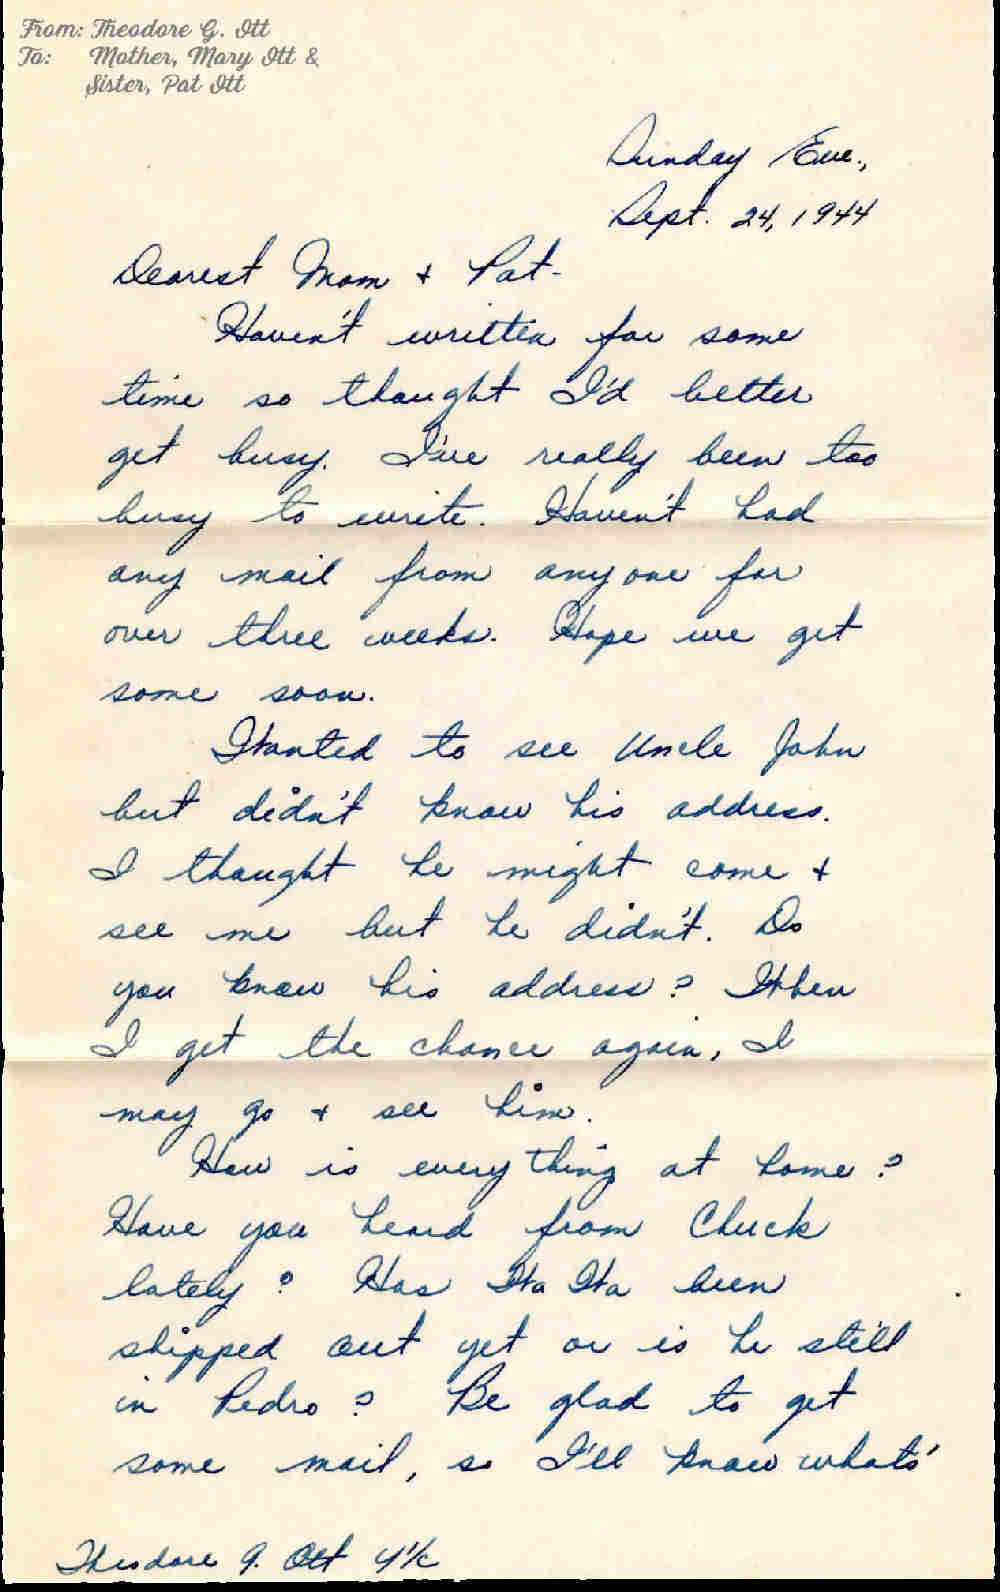 From: Theodore G. Ott
To: Mother, Mary Ott &
Sister, Pat Ott
Sunday Eve.,
Sept. 24, 1944
Dearest Mom & Pat-
Haven't written for some
time so thought I'd better
get busy. I've really been too
busy to write. Haven't had
any mail from anyone for
over three weeks. Hope we get
some soon.
Wanted to see Uncle John
but didn't know his address.
I thought he might come &
see me but he didn't. Do
you know his address? When
I get the chance again, I
may go & see him.
How is everything at home?
Have you heard from Chuck
lately? Has Wa Wa been
shipped out yet or is he still
in Pedro? Be glad to get
some mail, so I'll know what's
Theodore G. Ott Y1/c